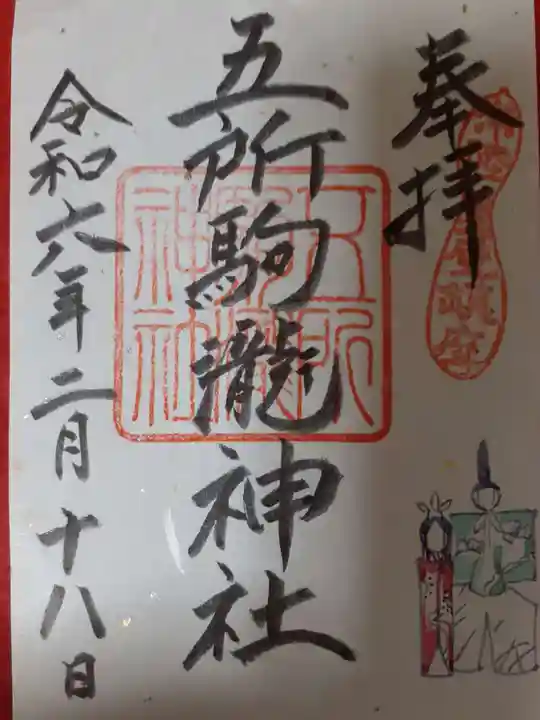 奉拝
五所駒瀧神社
令和六年二月十八日
五所
駒瀧
神社